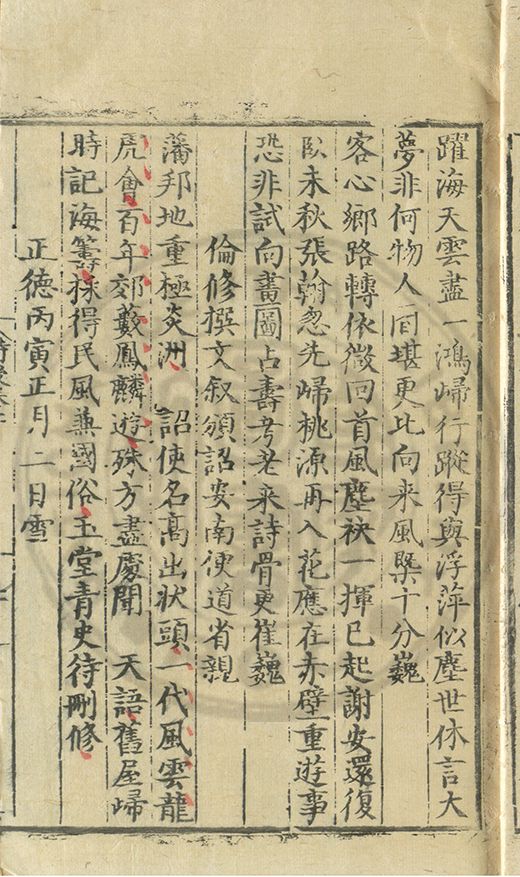 躍海天雲盡一鴻歸行蹤得與浮萍似塵世休言大
夢非何物人間堪更比向来風槩十分巍
客心鄉路轉依微回首風塵袂一揮已起謝安還復
臥未秋張翰忽先歸桃源再入花應在赤壁重遊事
恐非試向畫圖占壽考老来詩骨更崔巍
倫修撰文叙頒詔安南便道省親
藩邦地重極炎洲 詔使名高出狀頭一代風雲龍
虎會百年郊藪鳳麟遊殊方盡慶聞 天語舊屋歸
時記海籌採得民風兼國俗玉堂青史待刪修
正德丙寅正月二日雪